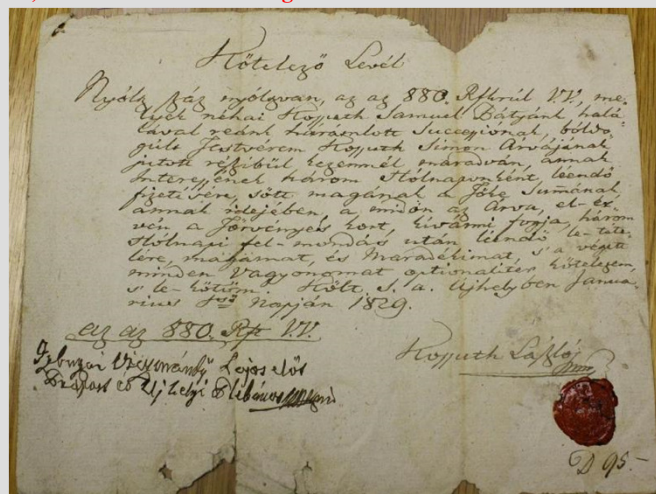 Kötelező Levél
Nyólcz száz nyólczvan, az az 880. Rftrúl VV, me-
lyek néhai Kossuth Samuel Bátyánk halá-
lával reánk háramlott Successiónak, bóldo-
gúlt Testvérem Kossuth Simon Árvájának
jutott részibűl kezemnél maradván, annak
Interessének három Hólnaponként, leendő
fizetésére, sőtt magának a Főke Summának
annak idejében, a midőn az Árva, el-ér-
vén a Törvényes kort, kivánni fogja, három
Hólnapi fel-mondás után leendő le-téte-
lére, magamat, és Maradékimat, s a végett
minden Vagyonomat optionaliter kötelezem,
s le-kötöm. Költ s. a. Ujhelyben Janua-
rius 1ső Napján 1829.
az az 880. Rft VV.
Kossuth László
Lajos előtt
Ujhelyi
D 95-